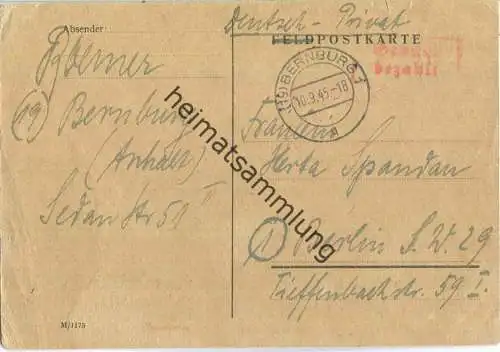 Absender:
Römer
(19) Bernburg
(Anhalt)
Sedanstr 51 II
M/1175
Deutsch - Privat
FELDPOSTKARTE
bezahlt
(19) BERNBURG 1
10.9.45.-18
a
Fräulein
Herta Spandau
(1) Berlin S.W. 29
Tieffenbachstr. 59 I.
heimatsammlung